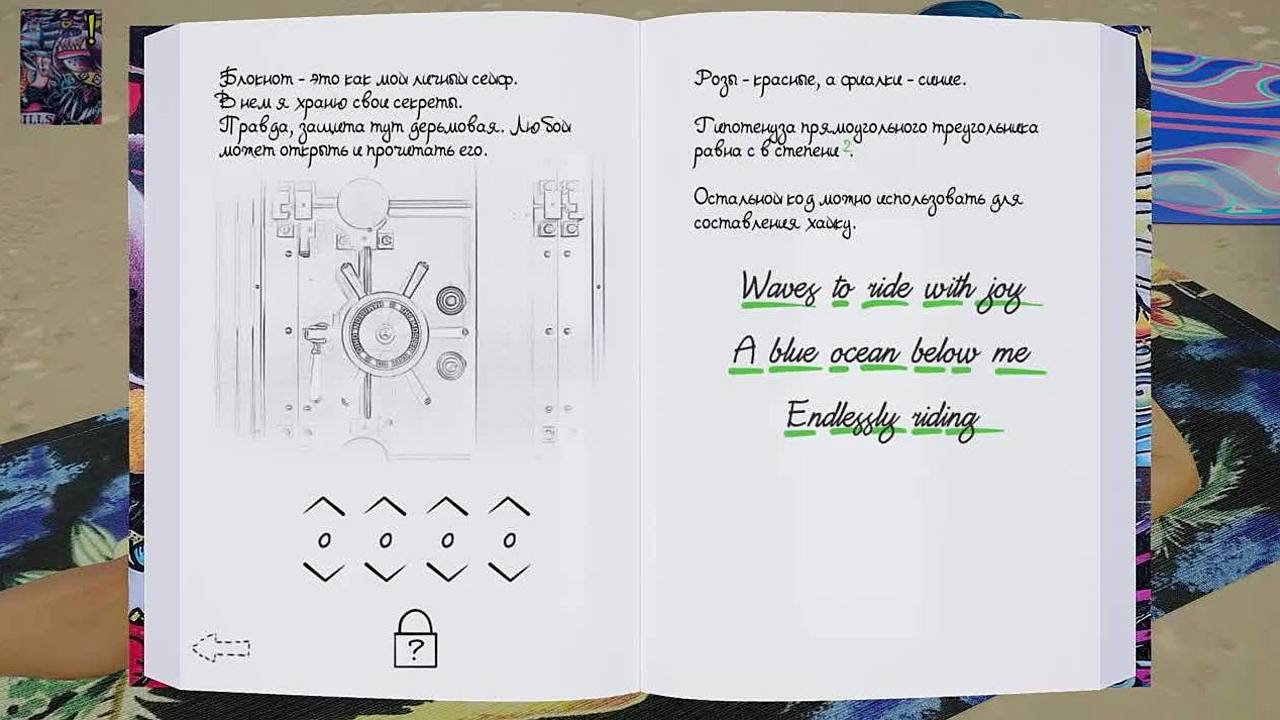 ILLS
Блокнот - это как мой личный сейф.
В нем я храню свои секреты.
Правда, защита тут дерьмовая. Любой
может открыть и прочитать его.
0 0 0 0
?
Розы - красные, а фиалки - синие.
Гипотенуза прямоугольного треугольника
равна с в степени 2.
Остальной код можно использовать для
составления хайку.
Waves to ride with joy
A blue ocean below me
Endlessly riding